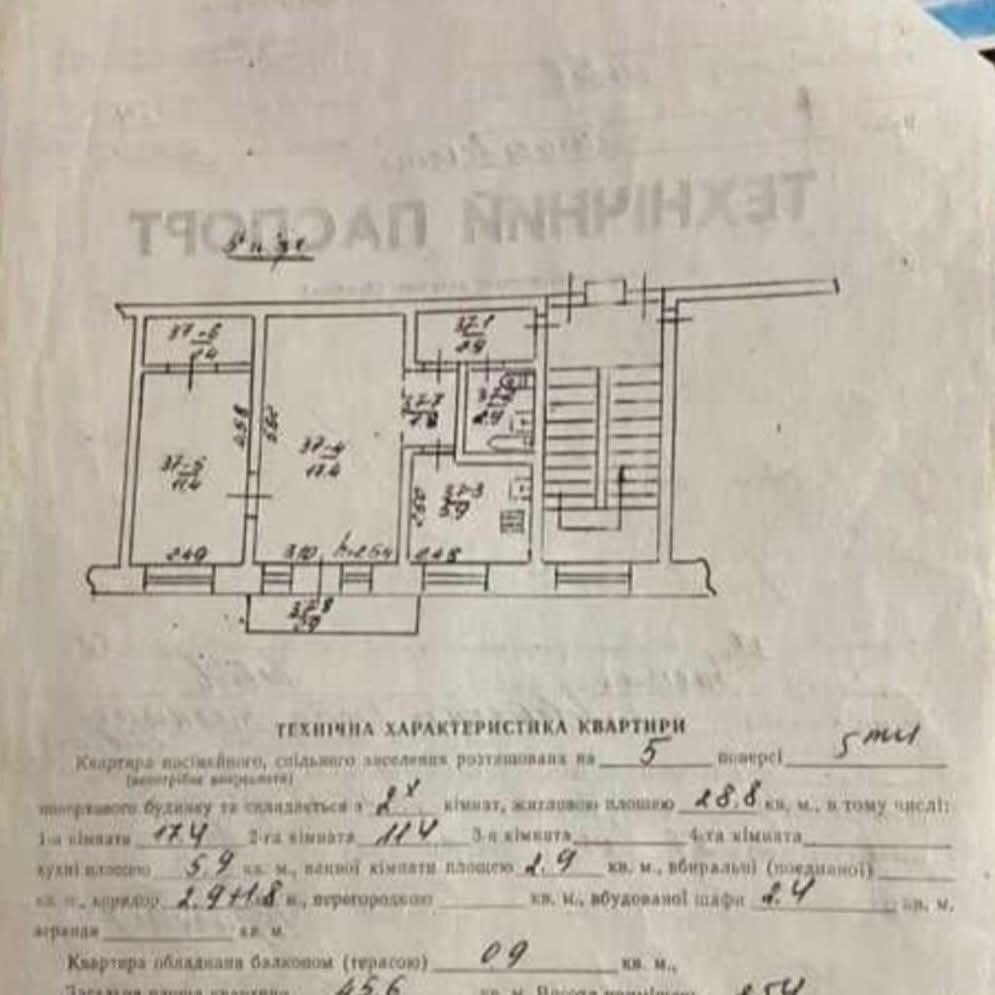 ТЕХНІЧНИЙ ПАСПОРТ
37-6
2.4
37-1
2.9
37-7
1.8
37-2
2.9
2.58
5.60
37-4
17.4
37-5
11.4
37-3
5.9
2.60
2.49
3.10 h=2.54 2.48
37-8
0.9
ТЕХНІЧНА ХАРАКТЕРИСТИКА КВАРТИРИ
Квартира посімейного, спільного заселення розташована на 5 поверсі 5ти
(непотрібне викреслити)
поверхового будинку та складається з 2х кімнат, житловою площею 28.8 кв. м., в тому числі:
1-а кімната 17.4 2-га кімната 11.4 3-я кімната 4-та кімната
кухні площею 5.9 кв. м., ванної кімнати площею 2.9 кв. м., вбиральні (поєднаної)
кв. м., коридор 2.9+1.8 м., перегородкою кв. м., вбудованої шафи 2.4 кв. м.
веранди кв. м.
Квартира обладнана балконом (терасою) 0.9 кв. м.,
Загальна площа квартири 45.6 кв. м. Висота приміщень 2.54